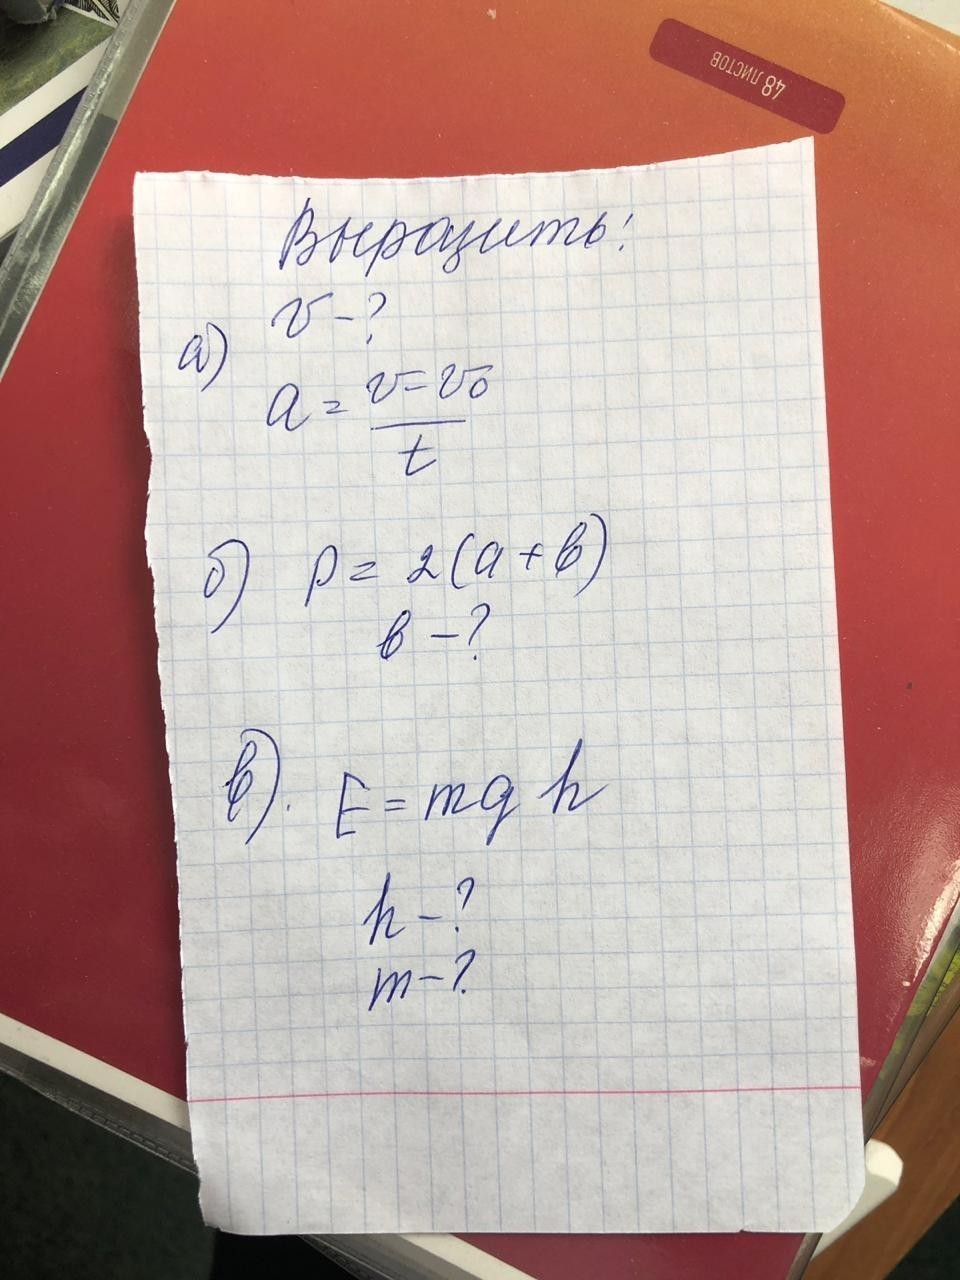 48 ЛИСТОВ
Выразить:
v - ?
а) a = v - v₀ / t
б) p = 2(a + b)
b - ?
в). E = mgh
h - ?
m - ?